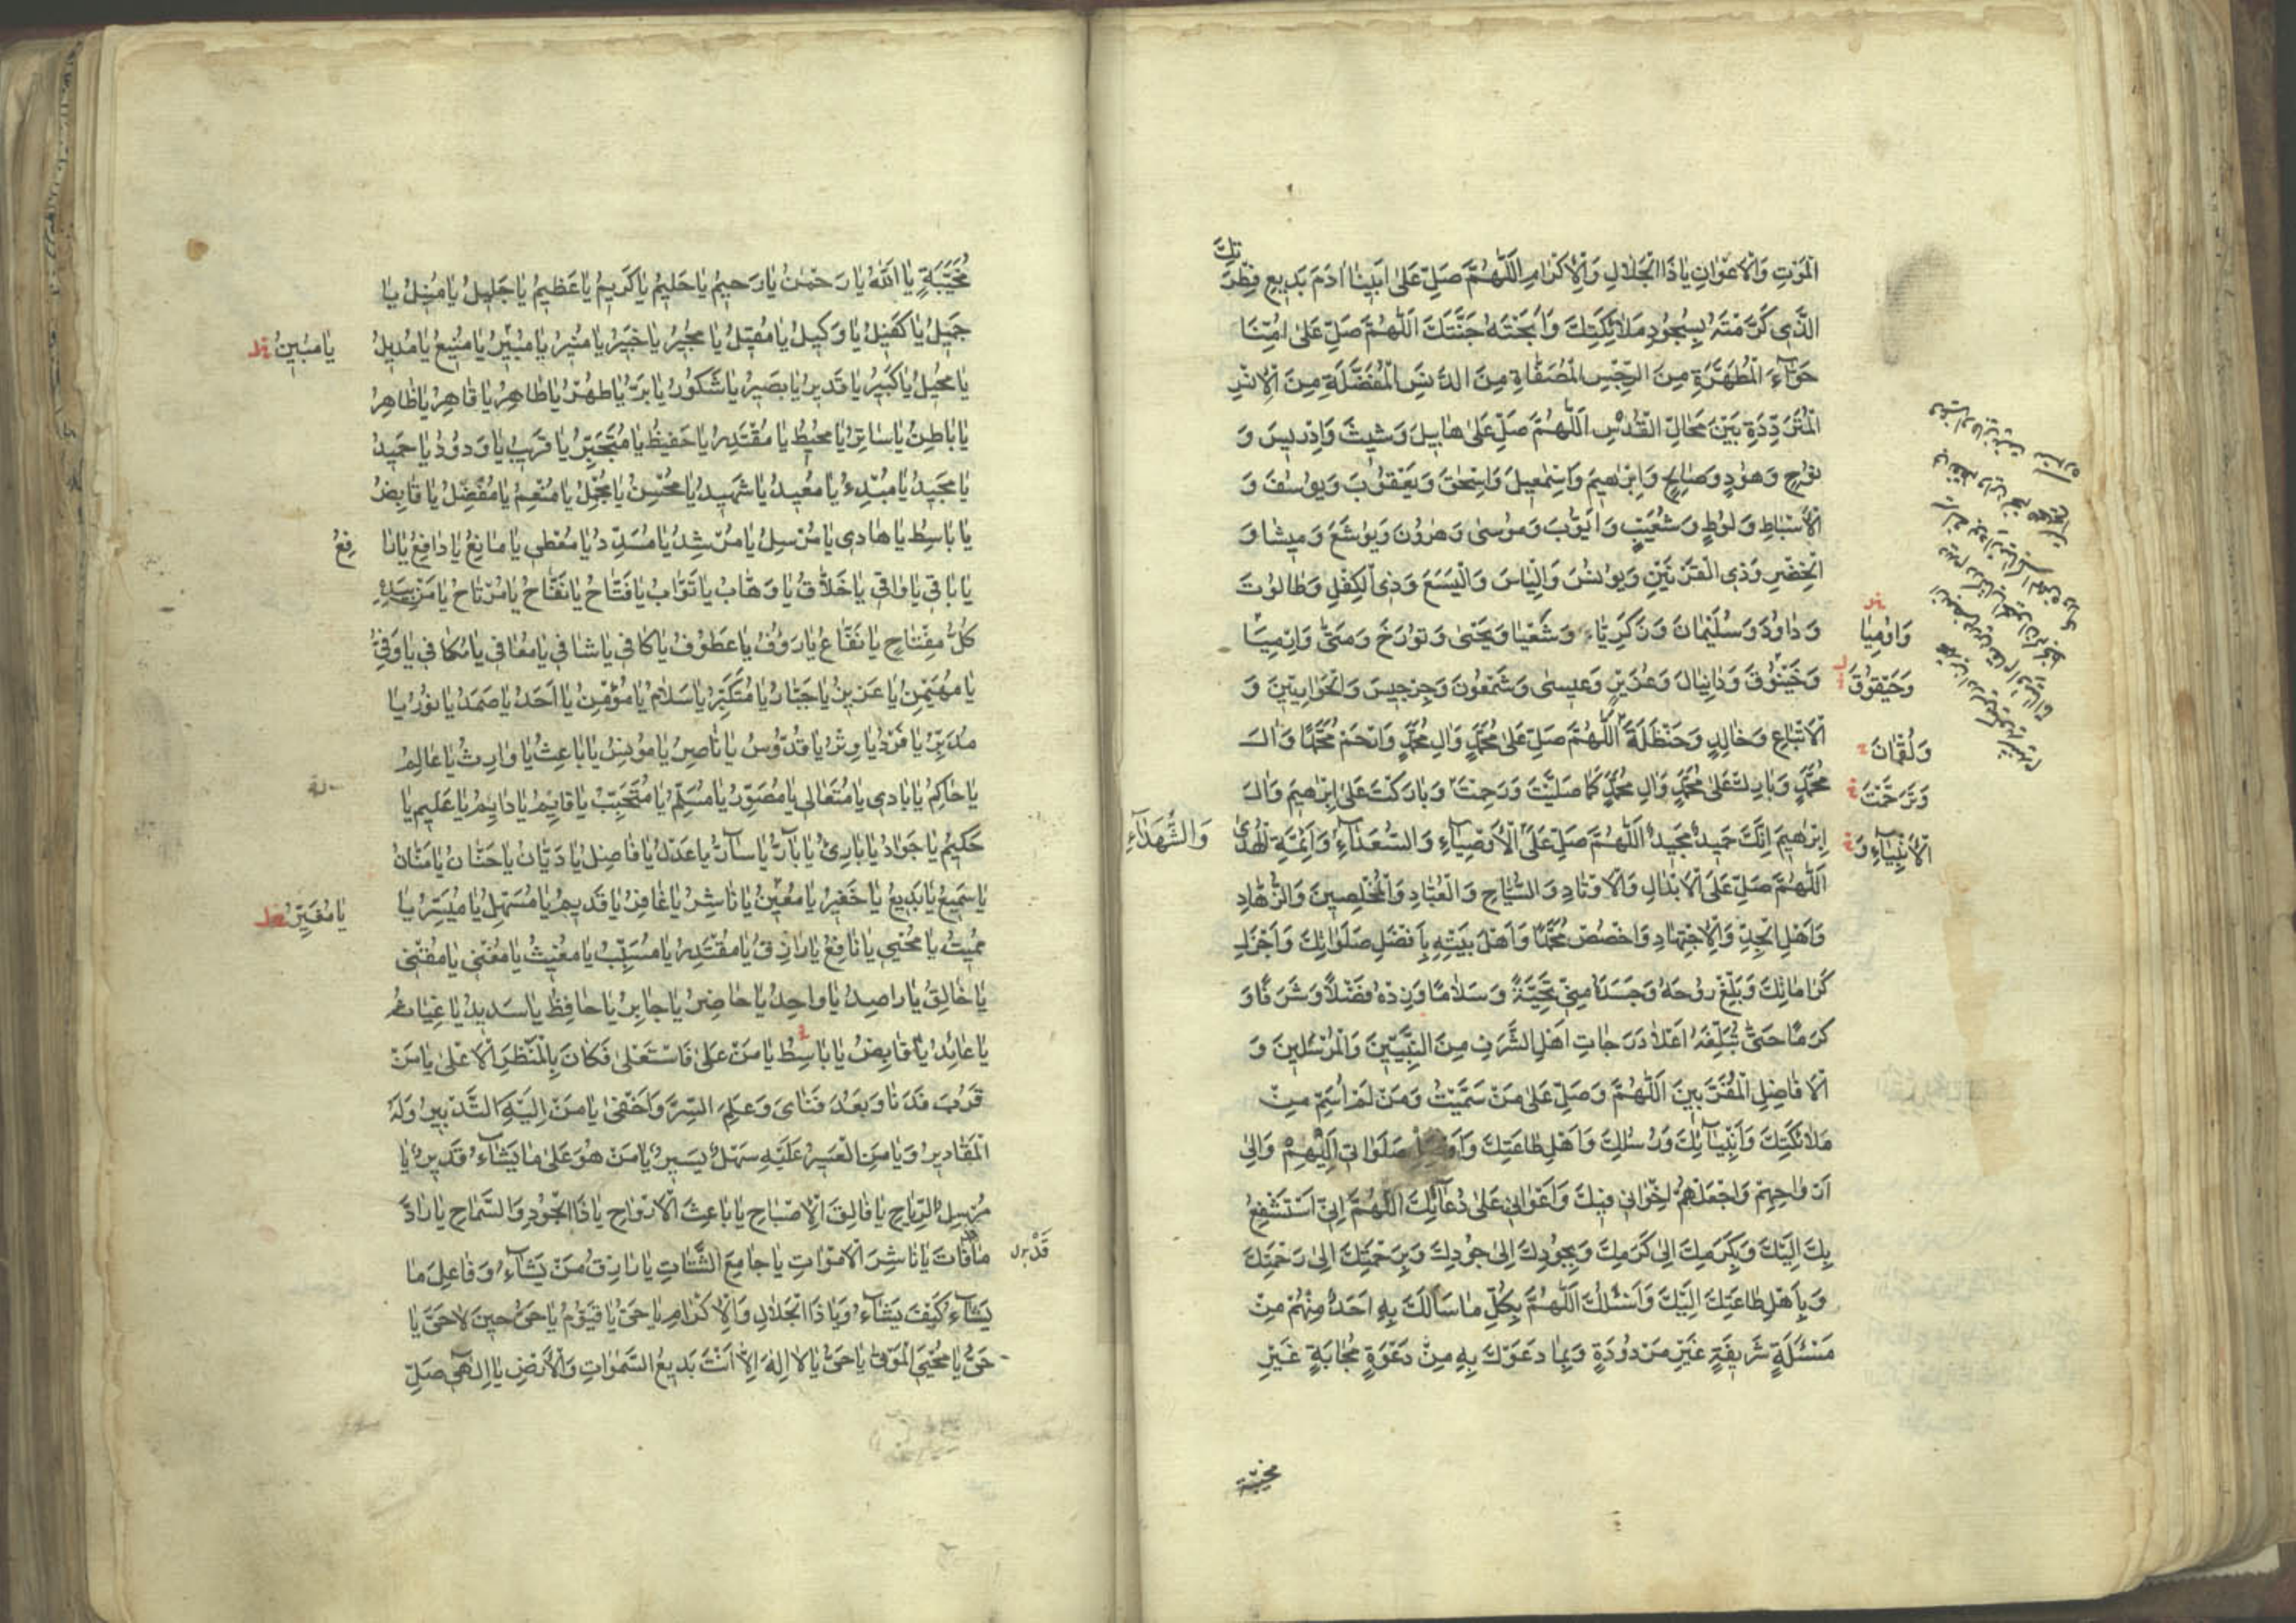 الْمَوْتِ وَالْاَعْوٰانِ يٰا ذَا الْجَلٰالِ وَالْاِكْرٰامِ اَللّٰهُمَّ صَلِّ عَلىٰ اَبينٰا اٰدَمَ بَديعِ فِطْرَتِكَ
الَّذى كَرَّمْتَهُ بِسُجُودِ مَلٰائِكَتِكَ وَاَبَحْتَهُ جَنَّتَكَ اَللّٰهُمَّ صَلِّ عَلىٰ اُمِّنٰا
حَوّٰآءَ الْمُطَهَّرَةِ مِنَ الرِّجْسِ الْمُصَفّٰاةِ مِنَ الدَّنَسِ الْمُفَضَّلَةِ مِنَ الْاِنْسِ
الْمُتَرَدِّدَةِ بَيْنَ مَحٰالِّ الْقُدْسِ اَللّٰهُمَّ صَلِّ عَلىٰ هٰابيلَ وَشيثَ وَاِدْريسَ وَ
نُوحٍ وَهُودٍ وَصٰالِحٍ وَاِبْرٰهيمَ وَاِسْمٰعيلَ وَاِسْحٰقَ وَيَعْقُوبَ وَيُوسُفَ وَ
الْاَسْبٰاطِ وَلُوطٍ وَشُعَيْبٍ وَاَيُّوبَ وَمُوسىٰ وَهٰرُونَ وَيُوشَعَ وَميشٰا وَ
الْخِضْرِ وَذِى الْقَرْنَيْنِ وَيُونُسَ وَاِلْيٰاسَ وَالْيَسَعَ وَذِى الْكِفْلِ وَطٰالُوتَ
وَدٰاوُدَ وَسُلَيْمٰانَ وَزَكَرِيّٰاءَ وَشَعْيٰا وَيَحْيىٰ وَتُورَخَ وَمَتّىٰ وَاِرْمِيٰا
وَاوْمِيٰا
وَحَيْقُوقَ وَدٰانِيٰالَ وَعُزَيْرٍ وَعيسىٰ وَشَمْعُونَ وَجِرْجيسَ وَالْحَوٰارِيّينَ وَ
وَحَيْقُوقَ
الْاَتْبٰاعِ وَخٰالِدٍ وَحَنْظَلَةَ اَللّٰهُمَّ صَلِّ عَلىٰ مُحَمَّدٍ وَاٰلِ مُحَمَّدٍ وَارْحَمْ مُحَمَّدًا وَاٰلَ
وَلُقْمٰانَ
مُحَمَّدٍ وَبٰارِكْ عَلىٰ مُحَمَّدٍ وَاٰلِ مُحَمَّدٍ كَمٰا صَلَّيْتَ وَرَحِمْتَ وَبٰارَكْتَ عَلىٰ اِبْرٰهيمَ وَاٰلِ
وَتَرَحَّمْتَ
اِبْرٰهيمَ اِنَّكَ حَميدٌ مَجيدٌ اَللّٰهُمَّ صَلِّ عَلَى الْاَوْصِيٰآءِ وَالسُّعَدٰآءِ وَاَئِمَّةِ الْهُدىٰ
الْاَنْبِيٰآءِ وَ
وَالشُّهَدٰآءِ
اَللّٰهُمَّ صَلِّ عَلَى الْاَبْدٰالِ وَالْاَوْتٰادِ وَالسُّيّٰاحِ وَالْعُبّٰادِ وَالْمُخْلِصينَ وَالزُّهّٰادِ
وَاَهْلِ الْجِدِّ وَالْاِجْتِهٰادِ وَاخْصُصْ مُحَمَّدًا وَاَهْلَ بَيْتِهِ بِاَفْضَلِ صَلَوٰاتِكَ وَاَجْزَلِ
كَرٰامٰاتِكَ وَبَلِّغْ رُوحَهُ وَجَسَدَهُ مِنّى تَحِيَّةً وَسَلٰامًا وَزِدْهُ فَضْلًا وَشَرَفًا وَ
كَرَمًا حَتّىٰ تُبَلِّغَهُ اَعْلٰا دَرَجٰاتِ اَهْلِ الشَّرَفِ مِنَ النَّبِيّينَ وَالْمُرْسَلينَ وَ
الْاَفٰاضِلِ الْمُقَرَّبينَ اَللّٰهُمَّ وَصَلِّ عَلىٰ مَنْ سَمَّيْتُ وَمَنْ لَمْ اُسَمِّ مِنْ
مَلٰائِكَتِكَ وَاَنْبِيٰآئِكَ وَرُسُلِكَ وَاَهْلِ طٰاعَتِكَ وَاَوْصِلْ صَلَوٰاتى اِلَيْهِمْ وَاِلىٰ
اَرْوٰاحِهِمْ وَاجْعَلْهُمْ اِخْوٰانى فيكَ وَاَعْوٰانى عَلىٰ دُعٰآئِكَ اَللّٰهُمَّ اِنّى اَسْتَشْفِعُ
بِكَ اِلَيْكَ وَبِكَرَمِكَ اِلىٰ كَرَمِكَ وَبِجُودِكَ اِلىٰ جُودِكَ وَبِرَحْمَتِكَ اِلىٰ رَحْمَتِكَ
وَبِاَهْلِ طٰاعَتِكَ اِلَيْكَ وَاَسْئَلُكَ اَللّٰهُمَّ بِكُلِّ مٰا سَاَلَكَ بِهِ اَحَدٌ مِنْهُمْ مِنْ
مَسْئَلَةٍ شَريفَةٍ غَيْرِ مَرْدُودَةٍ وَبِمٰا دَعَوْكَ بِهِ مِنْ دَعْوَةٍ مُجٰابَةٍ غَيْرِ
مخيّبة
مُخَيَّبَةٍ يٰا اَللّٰهُ يٰا رَحْمٰنُ يٰا رَحيمُ يٰا حَليمُ يٰا كَريمُ يٰا عَظيمُ يٰا جَليلُ يٰا مُنيلُ يٰا
جَميلُ يٰا كَفيلُ يٰا وَكيلُ يٰا مُقيلُ يٰا مُجيرُ يٰا خَبيرُ يٰا مُنيرُ يٰا مُبيرُ يٰا مَنيعُ يٰا مُديلُ
يٰا مُبينُ
يٰا مُحيلُ يٰا كَبيرُ يٰا قَديرُ يٰا بَصيرُ يٰا شَكُورُ يٰا بَرُّ يٰا طُهْرُ يٰا طٰاهِرُ يٰا قٰاهِرُ يٰا ظٰاهِرُ
يٰا بٰاطِنُ يٰا سٰاتِرُ يٰا مُحيطُ يٰا مُقْتَدِرُ يٰا حَفيظُ يٰا مُتَجَبِّرُ يٰا قَريبُ يٰا وَدُودُ يٰا حَميدُ
يٰا مَجيدُ يٰا مُبْدِءُ يٰا مُعيدُ يٰا شَهيدُ يٰا مُحْسِنُ يٰا مُجْمِلُ يٰا مُنْعِمُ يٰا مُفْضِلُ يٰا قٰابِضُ
يٰا بٰاسِطُ يٰا هٰادى يٰا مُرْسِلُ يٰا مُرْشِدُ يٰا مُسَدِّدُ يٰا مُعْطى يٰا مٰانِعُ يٰا دٰافِعُ يٰا رٰافِعُ
يٰا بٰاقى يٰا وٰاقى يٰا خَلّٰاقُ يٰا وَهّٰابُ يٰا تَوّٰابُ يٰا فَتّٰاحُ يٰا نَفّٰاحُ يٰا مُرْتٰاحُ يٰا مَنْ بِيَدِهِ
كُلُّ مِفْتٰاحٍ يٰا نَفّٰاعُ يٰا رَؤُفُ يٰا عَطُوفُ يٰا كٰافى يٰا شٰافى يٰا مُعٰافى يٰا مُكٰافى يٰا وَفِىُّ
يٰا مُهَيْمِنُ يٰا عَزيزُ يٰا جَبّٰارُ يٰا مُتَكَبِّرُ يٰا سَلٰامُ يٰا مُؤْمِنُ يٰا اَحَدُ يٰا صَمَدُ يٰا نُورُ يٰا
مُدَبِّرُ يٰا فَرْدُ يٰا وِتْرُ يٰا قُدُّوسُ يٰا نٰاصِرُ يٰا مُونِسُ يٰا بٰاعِثُ يٰا وٰارِثُ يٰا عٰالِمُ
يٰا حٰاكِمُ يٰا بٰادى يٰا مُتَعٰالى يٰا مُصَوِّرُ يٰا مُسَلِّمُ يٰا مُتَحَبِّبُ يٰا قٰائِمُ يٰا دٰايِمُ يٰا عَليمُ يٰا
حَكيمُ يٰا جَوٰادُ يٰا بٰارِئُ يٰا بٰآرُّ يٰا سٰآرُّ يٰا عَدْلُ يٰا فٰاصِلُ يٰا دَيّٰانُ يٰا حَنّٰانُ يٰا مَنّٰانُ
يٰا سَميعُ يٰا بَديعُ يٰا خَفيرُ يٰا مُعينُ يٰا نٰاشِرُ يٰا غٰافِرُ يٰا قَديمُ يٰا مُسَهِّلُ يٰا مُيَسِّرُ يٰا
يٰا مُغَيِّرُ
مُميتُ يٰا مُحْيى يٰا نٰافِعُ يٰا رٰازِقُ يٰا مُقْتَدِرُ يٰا مُسَبِّبُ يٰا مُغيثُ يٰا مُغْنى يٰا مُقْنى
يٰا خٰالِقُ يٰا رٰاصِدُ يٰا وٰاحِدُ يٰا حٰاضِرُ يٰا جٰابِرُ يٰا حٰافِظُ يٰا سَديدُ يٰا غِيٰاثُ
يٰا عٰائِدُ يٰا قٰابِضُ يٰا بٰاسِطُ يٰا مَنْ عَلىٰ فَاسْتَعْلىٰ فَكٰانَ بِالْمَنْظَرِ الْاَعْلىٰ يٰا مَنْ
قَرُبَ فَدَنٰا وَبَعُدَ فَنَاىٰ وَعَلِمَ السِّرَّ وَاَخْفىٰ يٰا مَنْ اِلَيْهِ التَّدْبيرُ وَلَهُ
الْمَقٰاديرُ وَيٰا مَنِ الْعَسيرُ عَلَيْهِ سَهْلٌ يَسيرٌ يٰا مَنْ هُوَ عَلىٰ مٰا يَشٰآءُ قَديرٌ يٰا
مُرْسِلَ الرِّيٰاحِ يٰا فٰالِقَ الْاِصْبٰاحِ يٰا بٰاعِثَ الْاَرْوٰاحِ يٰا ذَا الْجُودِ وَالسَّمٰاحِ يٰا رٰادَّ
مٰا فٰاتَ يٰا نٰاشِرَ الْاَمْوٰاتِ يٰا جٰامِعَ الشَّتٰاتِ يٰا رٰازِقُ مَنْ يَشٰآءُ وَفٰاعِلَ مٰا
قَدْ
يَشٰآءُ كَيْفَ يَشٰآءُ وَيٰا ذَا الْجَلٰالِ وَالْاِكْرٰامِ يٰا حَىُّ يٰا قَيُّومُ يٰا حَىُّ حينَ لٰا حَىَّ يٰا
حَىُّ يٰا مُحْيِىَ الْمَوْتىٰ يٰا حَىُّ يٰا لٰا اِلٰهَ اِلّٰا اَنْتَ بَديعُ السَّمٰوٰاتِ وَالْاَرْضِ يٰا اِلٰهى صَلِّ